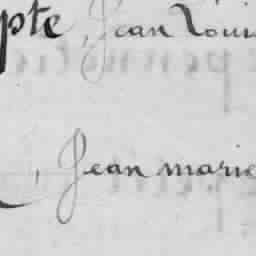 pte, Jean Loui
, Jean marie